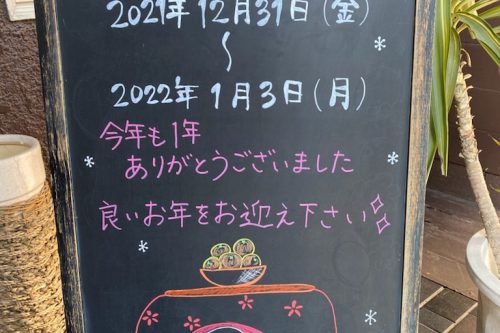 2021年12月31日(金)
〜
2022年1月3日(月)
今年も1年
ありがとうございました
良いお年をお迎え下さい